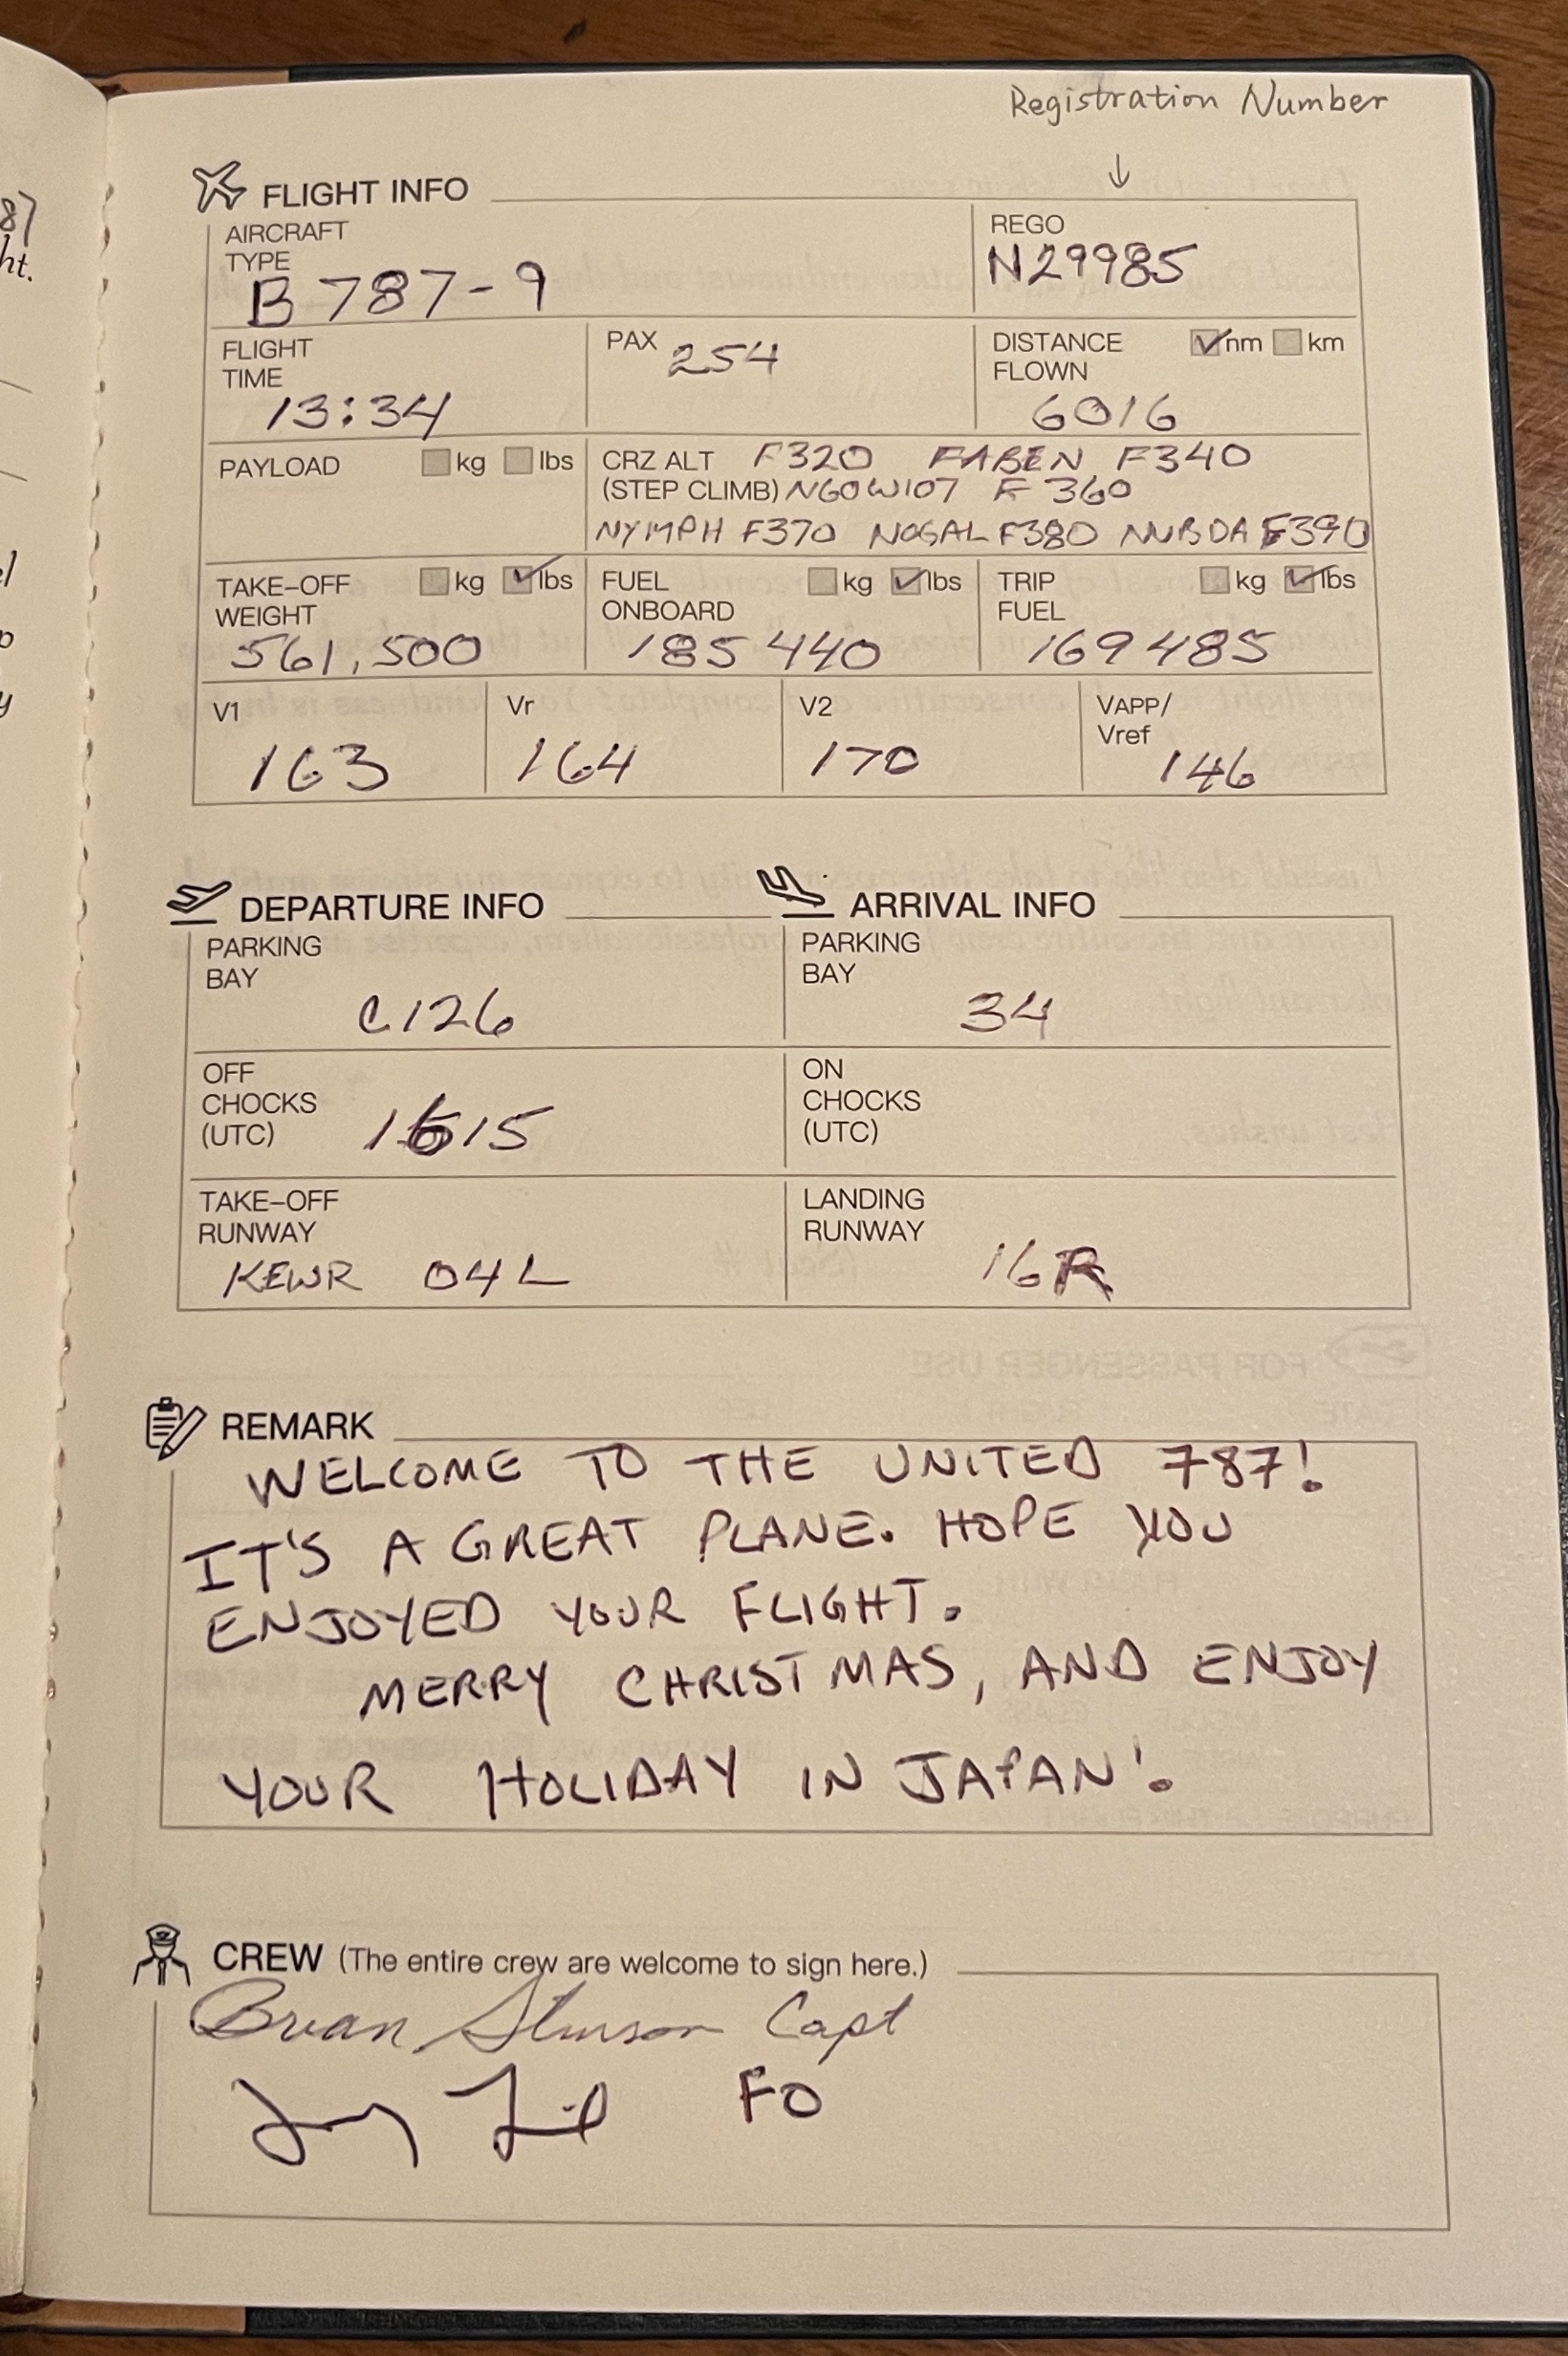 Registration Number
↓
FLIGHT INFO
AIRCRAFT TYPE
B 787-9
REGO
N29985
FLIGHT TIME
13:34
PAX 254
DISTANCE FLOWN nm km
6016
PAYLOAD kg lbs
CRZ ALT F320 FABEN F340
(STEP CLIMB) N60W107 F360
NYMPH F370 NOGAL F380 NUBDA F390
TAKE-OFF WEIGHT kg lbs
561,500
FUEL ONBOARD kg lbs
185 440
TRIP FUEL kg lbs
169485
V1
163
Vr
164
V2
170
VAPP/ Vref
146
DEPARTURE INFO
PARKING BAY
C126
OFF CHOCKS (UTC)
1615
TAKE-OFF RUNWAY
KEWR 04L
ARRIVAL INFO
PARKING BAY
34
ON CHOCKS (UTC)
LANDING RUNWAY
16R
REMARK
WELCOME TO THE UNITED 787!
IT'S A GREAT PLANE. HOPE YOU
ENJOYED YOUR FLIGHT.
MERRY CHRISTMAS, AND ENJOY
YOUR HOLIDAY IN JAPAN!
CREW (The entire crew are welcome to sign here.)
Brian Capt
FO
87
ht.